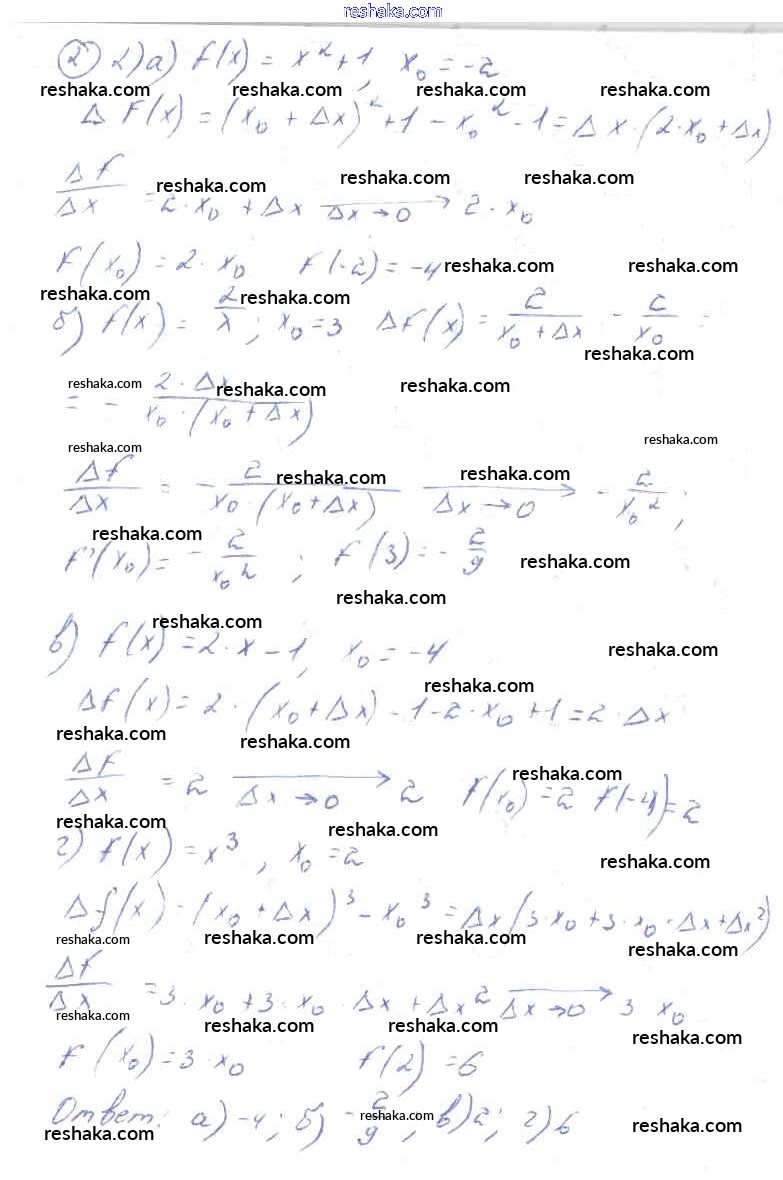 reshaka.com
② 2) а) f(x) = x² + 1, x₀ = -2
reshaka.com reshaka.com reshaka.com reshaka.com
Δ f(x) = (x₀ + Δx)² + 1 - x₀² - 1 = Δx·(2·x₀ + Δx)
reshaka.com reshaka.com reshaka.com
Δf/Δx = 2·x₀ + Δx →(Δx→0) 2·x₀
f(x₀) = 2·x₀ f(-2) = -4 reshaka.com reshaka.com
reshaka.com reshaka.com
б) f(x) = 2/x; x₀ = 3 Δf(x) = 2/(x₀ + Δx) - 2/x₀ =
reshaka.com
reshaka.com reshaka.com reshaka.com
= - 2·Δx/(x₀·(x₀ + Δx))
reshaka.com reshaka.com
reshaka.com reshaka.com
Δf/Δx = - 2/(x₀·(x₀ + Δx)) →(Δx→0) - 2/x₀²;
reshaka.com
f'(x₀) = - 2/x₀²; f(3) = - 2/9 reshaka.com
reshaka.com
reshaka.com
в) f(x) = 2·x - 1, x₀ = -4 reshaka.com
reshaka.com
Δf(x) = 2·(x₀ + Δx) - 1 - 2·x₀ + 1 = 2·Δx
reshaka.com reshaka.com
reshaka.com
Δf/Δx = 2 →(Δx→0) 2 f(x₀) = 2 f(-4) = 2
reshaka.com reshaka.com
г) f(x) = x³, x₀ = 2 reshaka.com
Δf(x) = (x₀ + Δx)³ - x₀³ = Δx(3·x₀ + 3·x₀·Δx + Δx²)
reshaka.com reshaka.com reshaka.com reshaka.com
Δf/Δx = 3·x₀ + 3·x₀·Δx + Δx² →(Δx→0) 3 x₀
reshaka.com reshaka.com reshaka.com reshaka.com
f(x₀) = 3·x₀ f(2) = 6
Ответ: а) -4; б) - 2/9; в) 2; г) 6
reshaka.com reshaka.com reshaka.com reshaka.com